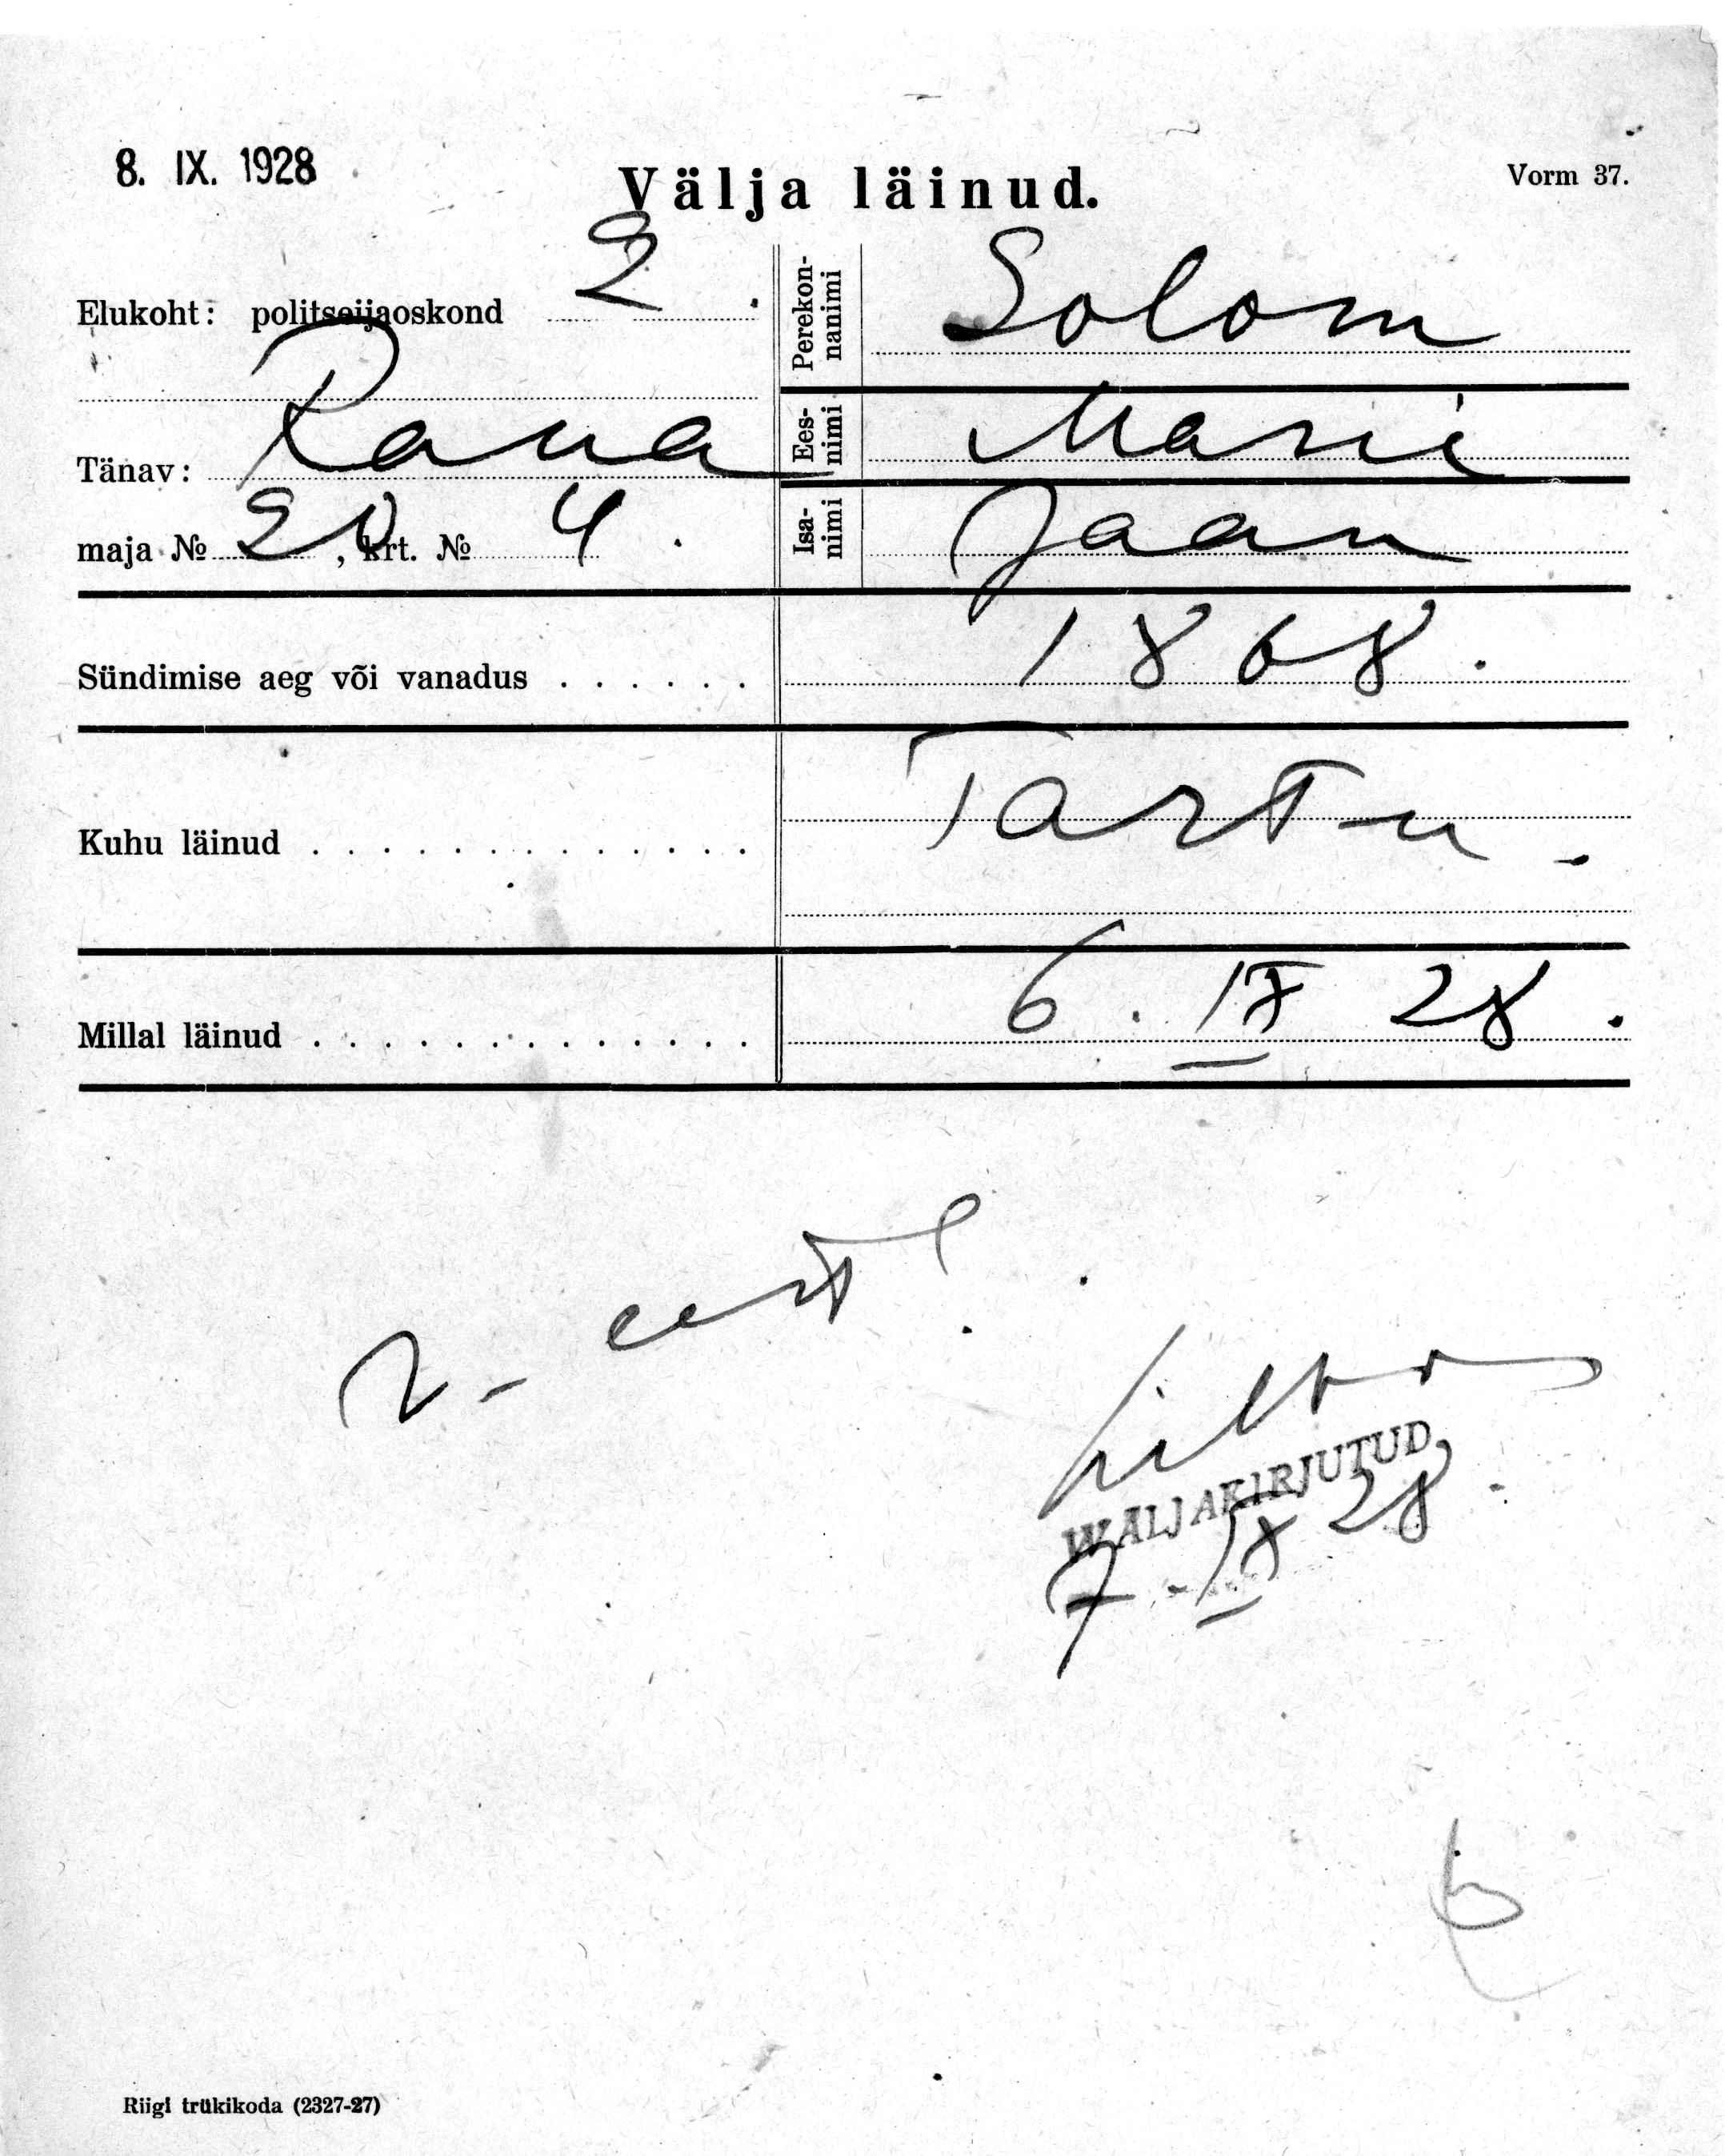 8. IX. 1928
Välja läinud.
Vorm 37.
Elukoht: politseijaoskond 2.
Tänav: Raua
maja № 20, krt. № 4.
Perekonnanimi Solom
Eesnimi Marie
Isanimi Jaan
Sündimise aeg või vanadus . . . . . . 1868.
Kuhu läinud . . . . . . . . . . . . . Tartu.
Millal läinud . . . . . . . . . . . . . 6. IX 28.
n- eest.
WÄLJAKIRJUTUD
7 - IX 28.
Riigi trükikoda (2327-27)